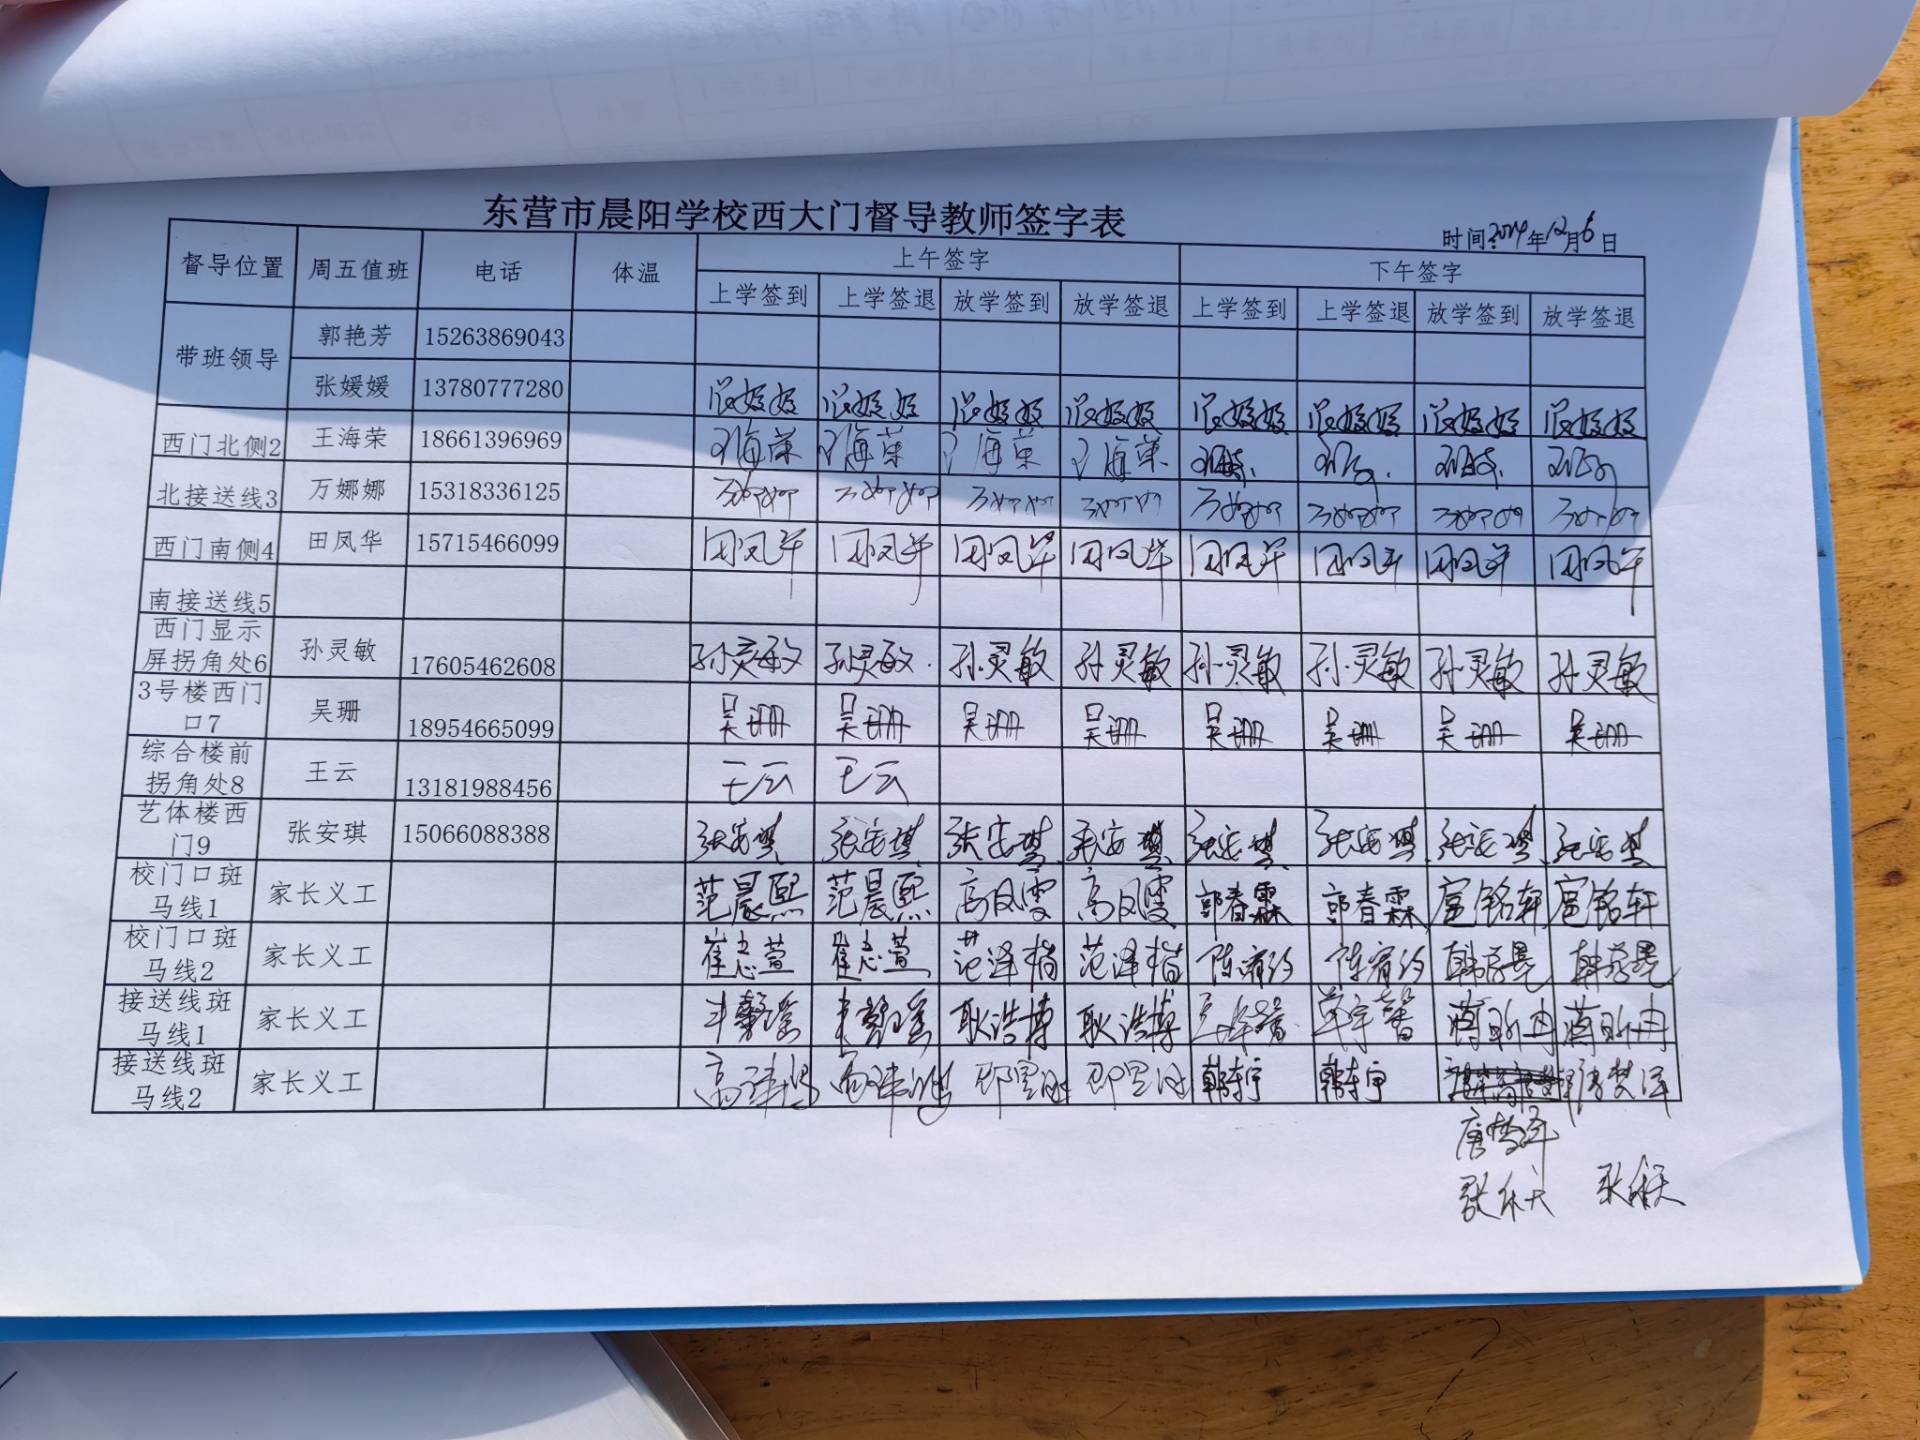 东营市晨阳学校西大门督导教师签字表
时间:2024年12月6日
督导位置 周五值班 电话 体温 上午签字 下午签字
上学签到 上学签退 放学签到 放学签退 上学签到 上学签退 放学签到 放学签退
带班领导 郭艳芳 15263869043
张媛媛 13780777280 张媛媛 张媛媛 张媛媛 张媛媛 张媛媛 张媛媛 张媛媛 张媛媛
西门北侧2 王海荣 18661396969 王海荣 王海荣 王海荣 王海荣
北接送线3 万娜娜 15318336125 万娜娜 万娜娜 万娜娜 万娜娜 万娜娜 万娜娜 万娜娜 万娜娜
西门南侧4 田凤华 15715466099 田凤华 田凤华 田凤华 田凤华 田凤华 田凤华 田凤华 田凤华
南接送线5
西门显示
屏拐角处6 孙灵敏 17605462608 孙灵敏 孙灵敏 孙灵敏 孙灵敏 孙灵敏 孙灵敏 孙灵敏 孙灵敏
3号楼西门
口7 吴珊 18954665099 吴珊 吴珊 吴珊 吴珊 吴珊 吴珊 吴珊 吴珊
综合楼前
拐角处8 王云 13181988456 王云 王云
艺体楼西
门9 张安琪 15066088388 张安琪 张安琪 张安琪 张安琪 张安琪 张安琪 张安琪 张安琪
校门口斑
马线1 家长义工 范晨熙 范晨熙 高凤雯 高凤雯 郭春霖 郭春霖 扈铭轩 扈铭轩
校门口斑
马线2 家长义工 崔志萱 崔志萱 范泽楷 范泽楷
接送线斑
马线1 家长义工 耿浩博 耿浩博 蒋昕冉 蒋昕冉
接送线斑
马线2 家长义工 韩东宇 韩东宇 唐梦泽
唐梦泽